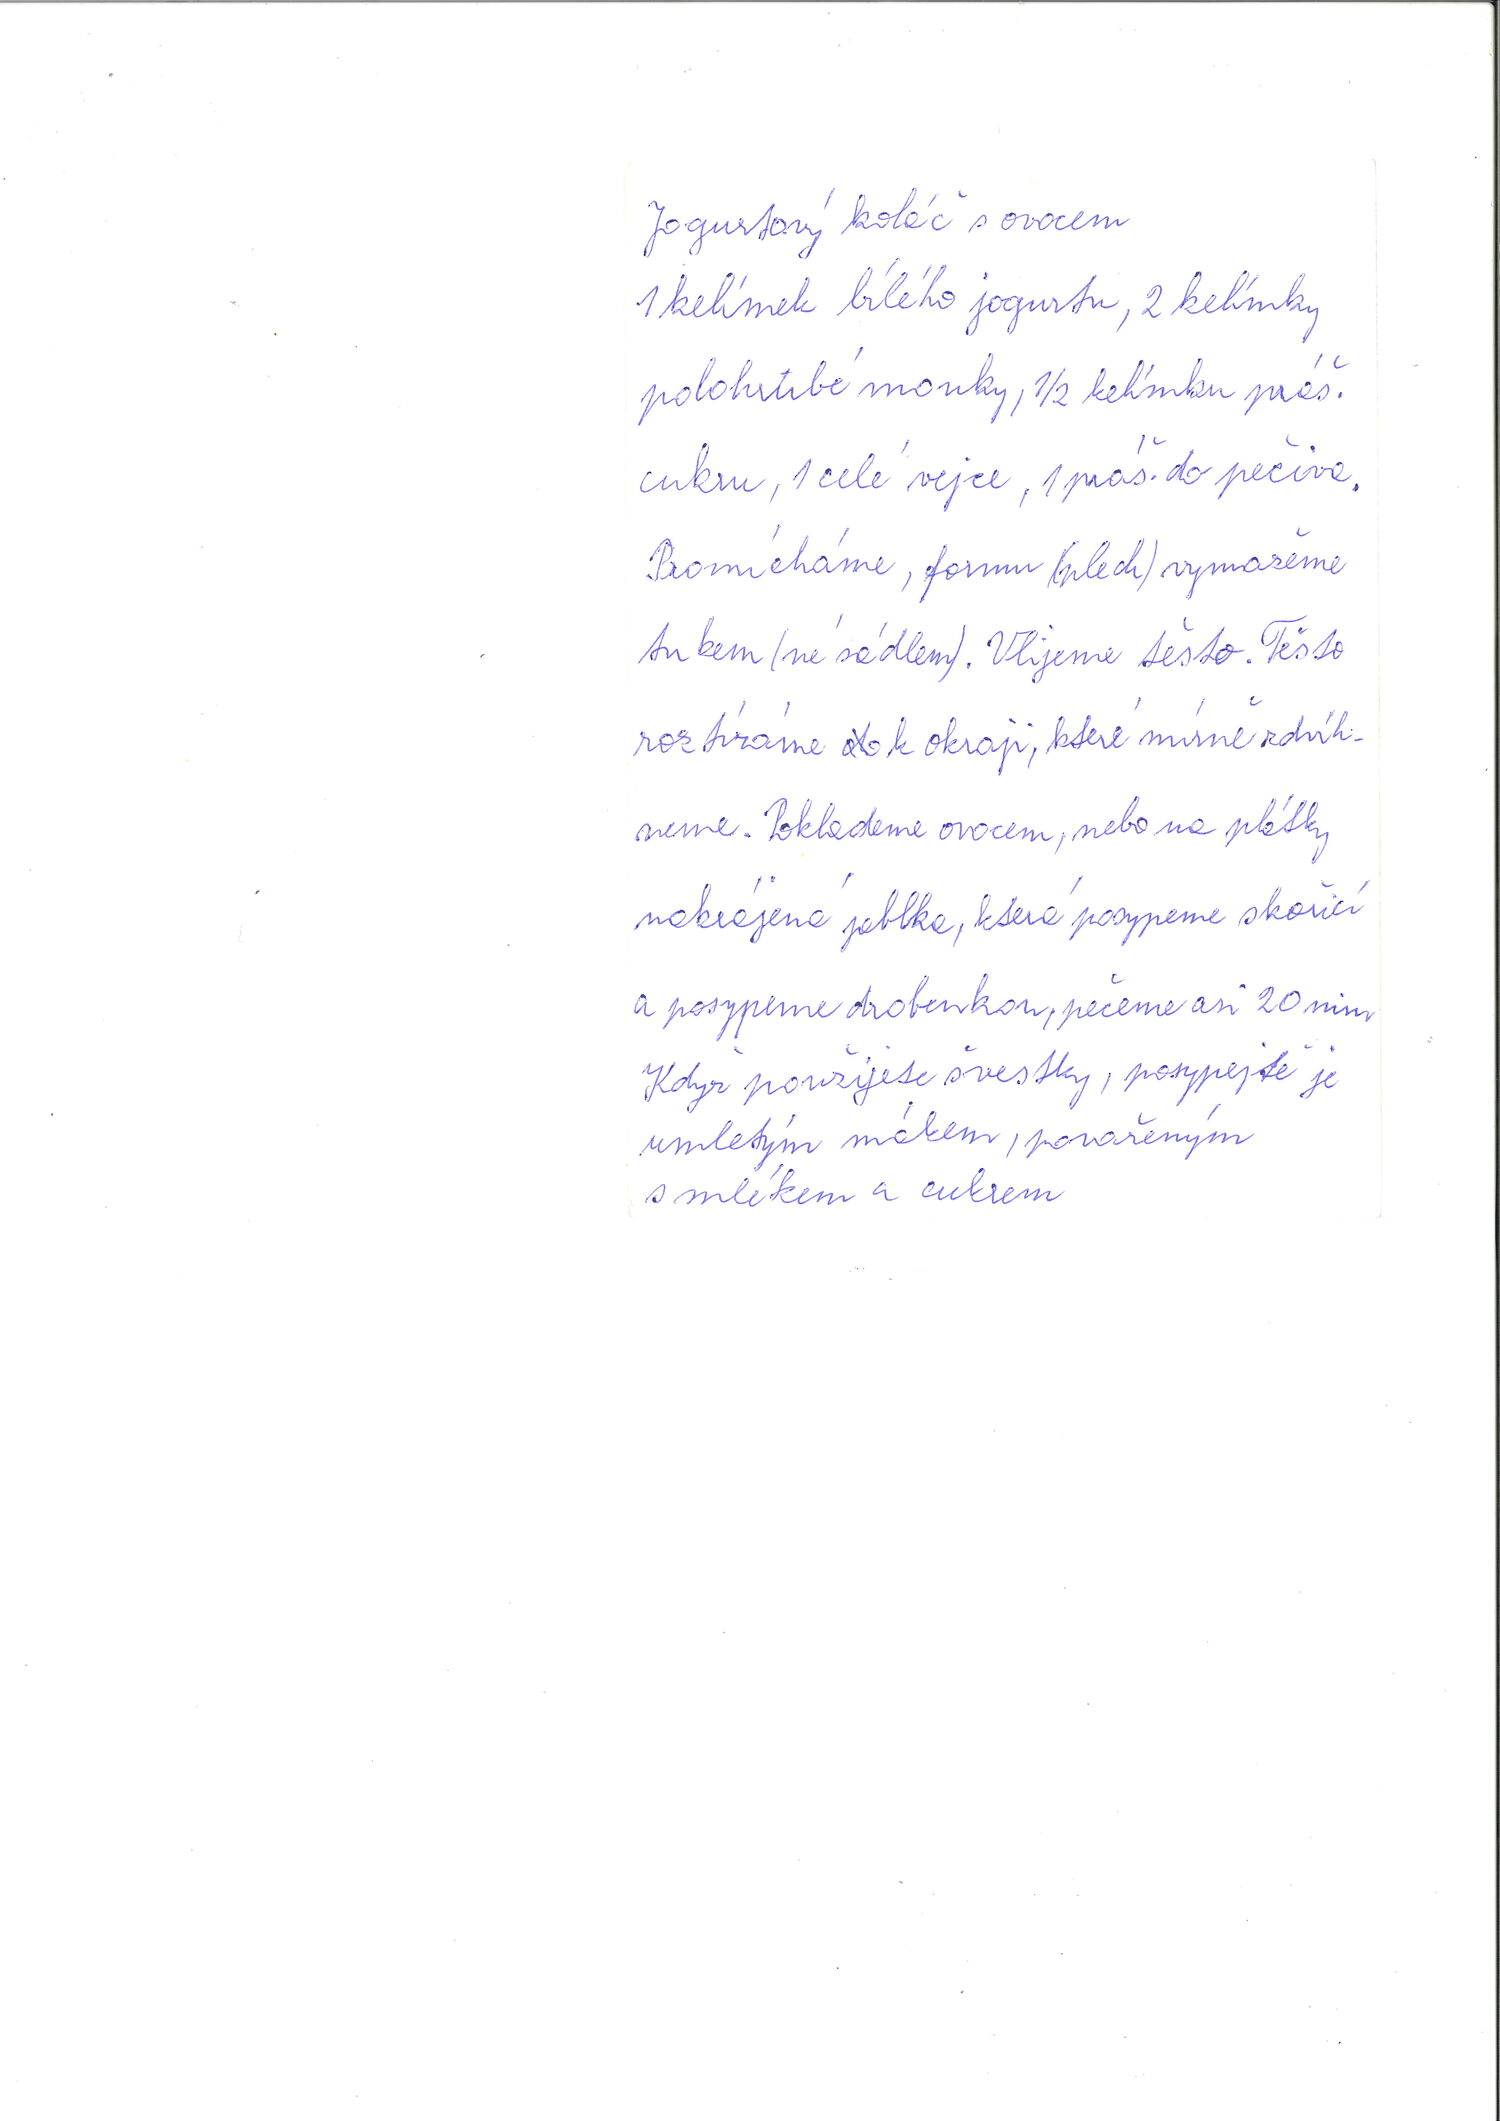 Jogurtový koláč s ovocem
1 kelímek bílého jogurtu, 2 kelímky
polohrubé mouky, 1/2 kelímku práš.
cukru, 1 celé vejce, 1 práš. do pečiva.
Promícháme, formu (plech) vymažeme
tukem (né sádlem). Vlijeme těsto. Těsto
roztíráme k okraji, které mírně zdvih-
neme. Poklademe ovocem, nebo na plátky
nakrájená jablka, která posypeme skořicí
a posypeme drobenkou, pečeme asi 20 min
Když použijete švestky, posypejte je
umletým mákem, povařeným
s mlékem a cukrem